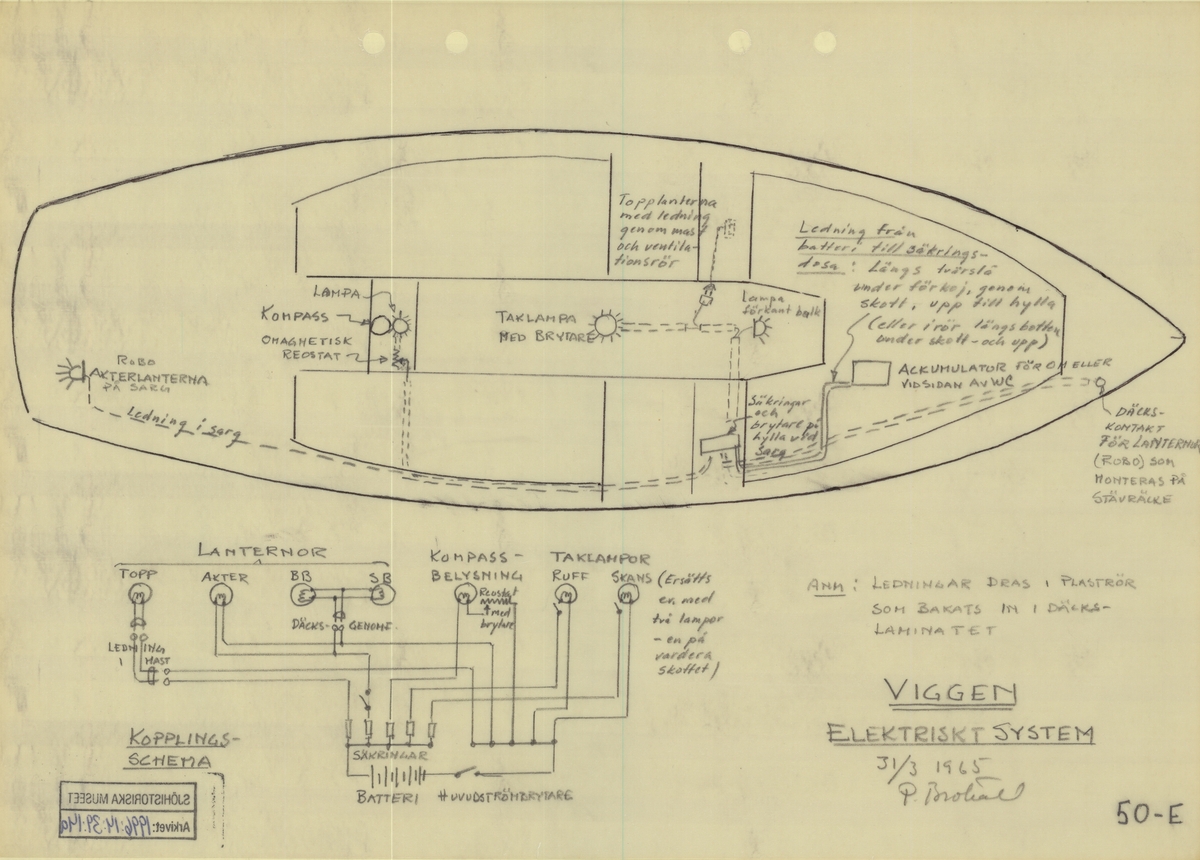 Topplanterna
med ledning
genom mast
och ventila-
tionsrör
Ledning från
batteri till säkrings-
dosa: Längs tvärslå
under förkoj, genom
skott, upp till hylla
(eller i rör längs botten
under skott - och upp)
LAMPA
KOMPASS
OMAGNETISK
REOSTAT
TAKLAMPA
MED BRYTARE
Lampa
förkant balk
ROBO
AKTERLANTERNA
PÅ SARG
Ledning i sarg
ACKUMULATOR FÖR OM ELLER
VIDSIDAN AV WC
Säkringar
och
brytare på
hylla vid
sarg
DÄCKS-
KONTAKT
FÖR LANTERNOR
(ROBO) SOM
MONTERAS PÅ
STÄVRÄCKE
LANTERNOR
TOPP
AKTER
BB
SB
DÄCKS-GENOMF.
LEDNING
I
MAST
KOMPASS-
BELYSNING
Reostat
med
brytare
TAKLAMPOR
RUFF
SKANS
(Ersätts
ev. med
två lampor
- en på
vardera
skottet)
SÄKRINGAR
BATTERI
HUVUDSTRÖMBRYTARE
KOPPLINGS-
SCHEMA
ANM: LEDNINGAR DRAS I PLASTRÖR
SOM BAKATS IN I DÄCKS-
LAMINATET
VIGGEN
ELEKTRISKT SYSTEM
31/3 1965
50-E
SJÖHISTORISKA MUSEET
Arkivet: 1996:14:39:14a